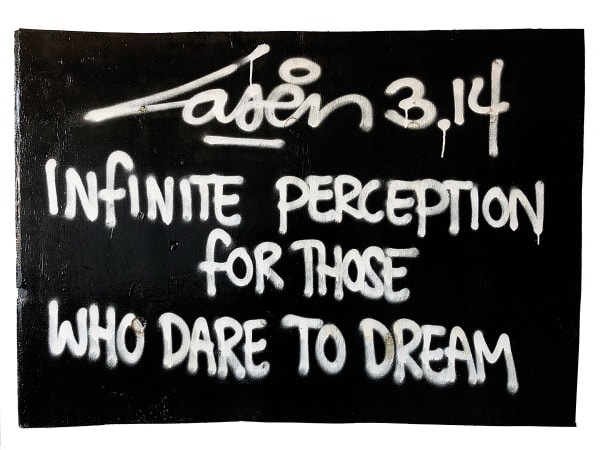 Lasén 3.14
INfiNITE PERCEPTION
fOR THOSE
WHO DARE TO DREAM